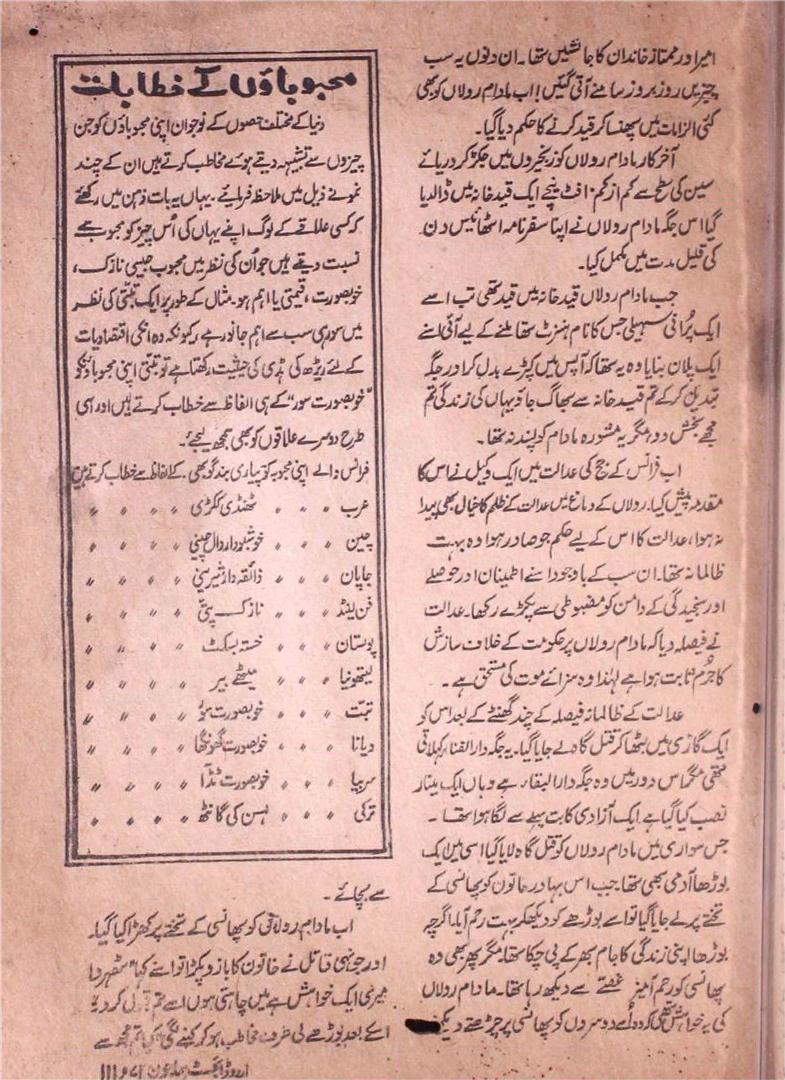 امیر اور ممتاز خاندان کا جانشیں تھا۔ ان دنوں یہ سب
چیزیں روز بروز سامنے آتی گئیں! اب مادام رولاں کو بھی
کئی الزامات میں پھنسا کر قید کرنے کا حکم دیا گیا۔
آخر کار مادام رولاں کو زنجیروں میں جکڑ کر دریائے
سین کی سطح سے کم از کم ۱۰ فٹ نیچے ایک قید خانہ میں ڈال دیا
گیا اس جگہ مادام رولاں نے اپنا سفر نامہ اٹھائیس دن
کی قلیل مدت میں مکمل کیا۔
جب مادام رولاں قید خانہ میں قید تھی تب اسے
ایک پرانی سہیلی جس کا نام ہنرٹ تھا ملنے کے لیے آئی اسنے
ایک پلان بنایا وہ یہ تھا کہ آپس میں کپڑے بدل کر اور جگہ
تبدیل کر کے تم قید خانہ سے بھاگ جاؤ یہاں کی زندگی تم
مجھے بخش دو، مگر یہ مشورہ مادام کو پسند نہ تھا۔
اب فرانس کے جج کی عدالت میں ایک وکیل نے اس کا
مقدمہ پیش کیا۔ رولاں کے دماغ میں عدالت کے ظلم کا خیال بھی پیدا
نہ ہوا، عدالت کا اس کے لیے حکم جو صادر ہوا وہ بہت
ظالمانہ تھا۔ ان سب کے باوجود اسنے اطمینان اور حوصلے
اور سنجیدگی کے دامن کو مضبوطی سے پکڑے رکھا۔ عدالت
نے فیصلہ دیا کہ مادام رولاں پر حکومت کے خلاف سازش
کا جرم ثابت ہوا ہے لہٰذا وہ سزائے موت کی مستحق ہے۔
عدالت کے ظالمانہ فیصلہ کے چند گھنٹے کے بعد اس کو
ایک گاڑی میں بٹھا کر قتل گاہ لے جایا گیا۔ یہ جگہ دارالفنا، کہلاتی
تھی مگر اس دور میں وہ جگہ دارالبقاء ہے وہاں ایک مینار
نصب کیا گیا ہے ایک آزادی کا بت پہلے سے لگا ہوا تھا۔
جس سواری میں مادام رولاں کو قتل گاہ لایا گیا اسی میں ایک
بوڑھا آدمی بھی تھا۔ جب اس بہادر خاتون کو پھانسی کے
تختے پر لے جایا گیا تو اسے بوڑھے کو دیکھ کر بہت رحم آیا۔ اگرچہ
بوڑھا اپنی زندگی کا جام بھر کے پی چکا تھا، مگر پھر بھی وہ
پھانسی کو رحم آمیز غصے سے دیکھ رہا تھا۔ مادام رولاں
کی یہ خواہش تھی کہ وہ اسے دوسروں کو پھانسی پر چڑھتے دیکھنے
محبوباؤں کے خطابات
دنیا کے مختلف حصوں کے نوجوان اپنی محبوباؤں کو جن
چیزوں سے تشبیہہ دیتے ہوئے مخاطب کرتے ہیں ان کے چند
نمونے ذیل میں ملاحظہ فرمایئے۔ یہاں یہ بات ذہن میں رکھئے
کہ کسی علاقے کے لوگ اپنے یہاں کی اُس چیز کو محبوب سے
نسبت دیتے ہیں جو اُن کی نظر میں محبوب جیسی نازک،
خوبصورت، قیمتی یا اہم ہو۔ مثال کے طور پر ایک تبتی کی نظر
میں سور ہی سب سے اہم جانور ہے، کیونکہ وہ انکی اقتصادیات
کے لئے ریڑھ کی ہڈی کی حیثیت رکھتا ہے تو تبتی اپنی محبوباؤنکو
"خوبصورت سور" کے ہی الفاظ سے خطاب کرتے ہیں اور اسی
طرح دوسرے علاقوں کو بھی سمجھ لیجئے۔
فرانس والے اپنی محبوبہ کو پیاری بند گوبھی۔ کے الفاظ سے خطاب کرتے ہیں
عرب 〃 〃 〃 ٹھنڈی ککڑی 〃 〃 〃 〃
چین 〃 〃 〃 خوشبودار دال چینی 〃 〃 〃 〃
جاپان 〃 〃 〃 ذائقہ دار شیرینی 〃 〃 〃 〃
فن لینڈ 〃 〃 〃 نازک پتی 〃 〃 〃 〃
پولستان 〃 〃 〃 خستہ بسکٹ 〃 〃 〃 〃
لیتھونیا 〃 〃 〃 میٹھے بیر 〃 〃 〃 〃
تبت 〃 〃 〃 خوبصورت سؤر 〃 〃 〃 〃
ویانا 〃 〃 〃 خوبصورت گھونگھا 〃 〃 〃 〃
سربیا 〃 〃 〃 خوبصورت ٹڈا 〃 〃 〃 〃
ترکی 〃 〃 〃 لہسن کی گانٹھ 〃 〃 〃 〃
سے بچائے۔
اب مادام رولاں کو پھانسی کے تختے پر کھڑا کیا گیا۔
اور جونہی قاتل نے خاتون کا بازو پکڑا تو اسنے کہا "ٹھہر
میری ایک خواہش ہے میں چاہتی ہوں اسے تم قبول کر
اسکے بعد بوڑھے کی طرف مخاطب ہو کر کہنے لگی تم مجھ سے
اردو ڈائجسٹ